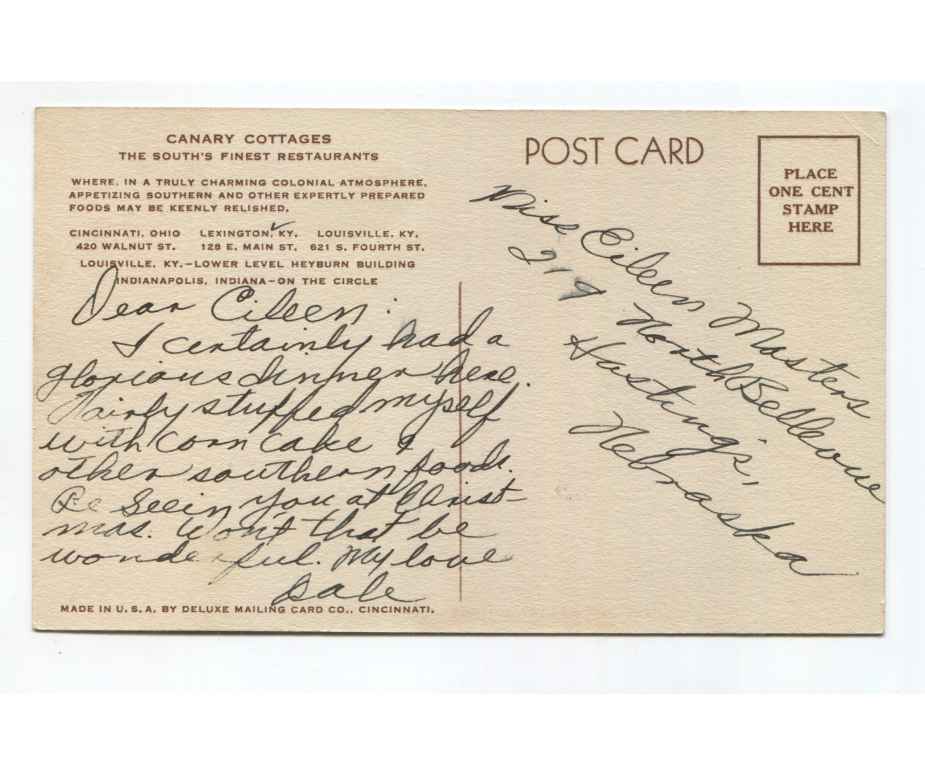 CANARY COTTAGES
THE SOUTH'S FINEST RESTAURANTS
WHERE, IN A TRULY CHARMING COLONIAL ATMOSPHERE,
APPETIZING SOUTHERN AND OTHER EXPERTLY PREPARED
FOODS MAY BE KEENLY RELISHED.
CINCINNATI, OHIO LEXINGTON, KY. LOUISVILLE, KY.
420 WALNUT ST. 128 E. MAIN ST. 621 S. FOURTH ST.
LOUISVILLE, KY.-LOWER LEVEL HEYBURN BUILDING
INDIANAPOLIS, INDIANA-ON THE CIRCLE
Dear Eileen:
I certainly had a
glorious dinner here.
Fairly stuffed myself
with corn cake &
other southern foods.
Be Seein you at Christ-
mas. Wont that be
wonderful. My love
Dale
MADE IN U.S.A. BY DELUXE MAILING CARD CO., CINCINNATI.
POST CARD
PLACE
ONE CENT
STAMP
HERE
Miss Eileen Masters
219 North Bellevue
Hastings,
Nebraska